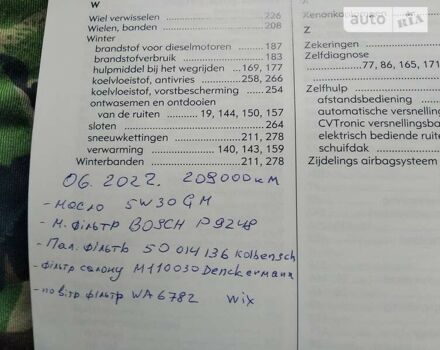 W
Wiel verwisselen 226
Wielen, banden 208
Winter
brandstof voor dieselmotoren 187
brandstofverbruik 183
hulpmiddel bij het wegrijden 169, 177
koelvloeistof, antivries 258, 266
koelvloeistof, vorstbescherming 254
ontwasemen en ontdooien
van de ruiten 19, 144, 150, 157
sloten 264
sneeuwkettingen 211, 278
verwarming 140, 143, 159
Winterbanden 211, 278
06.2022. 209000 км
- Масло 5W30 GM
- М. Фільтр BOSCH P9248
- Пал. Фільтр 50014136 Kolbensch
- Фільтр салону M110030 Denckermann
- повітр фільтр WA6782 Wix
auto RIA
Z
Zekeringen
Zelfdiagnose
77, 86, 165, 171
Zelfhulp
afstandsbediening
automatische versnelling
CVTronic versnellingsba
elektrisch bediende ruite
schuifdak
Zijdelings airbagsysteem